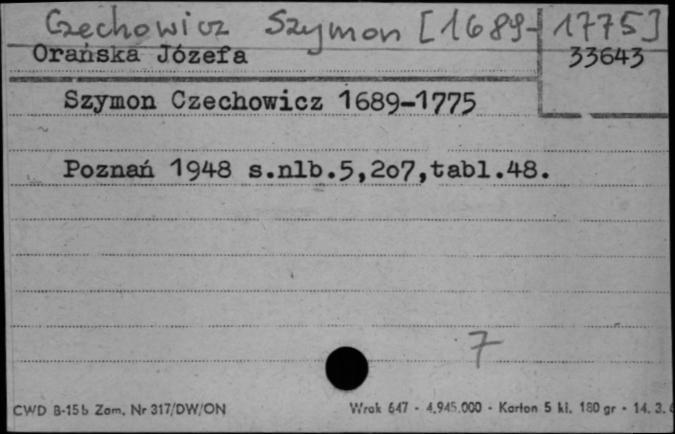 Czechowicz Szymon [1689-1775]
Orańska Józefa 33643
Szymon Czechowicz 1689-1775
Poznań 1948 s.nlb.5,2o7,tabl.48.
7
CWD B-15b Zam. Nr 317/DW/ON Wrak 647 - 4.945.000 - Karton 5 kl. 180 gr - 14. 3.